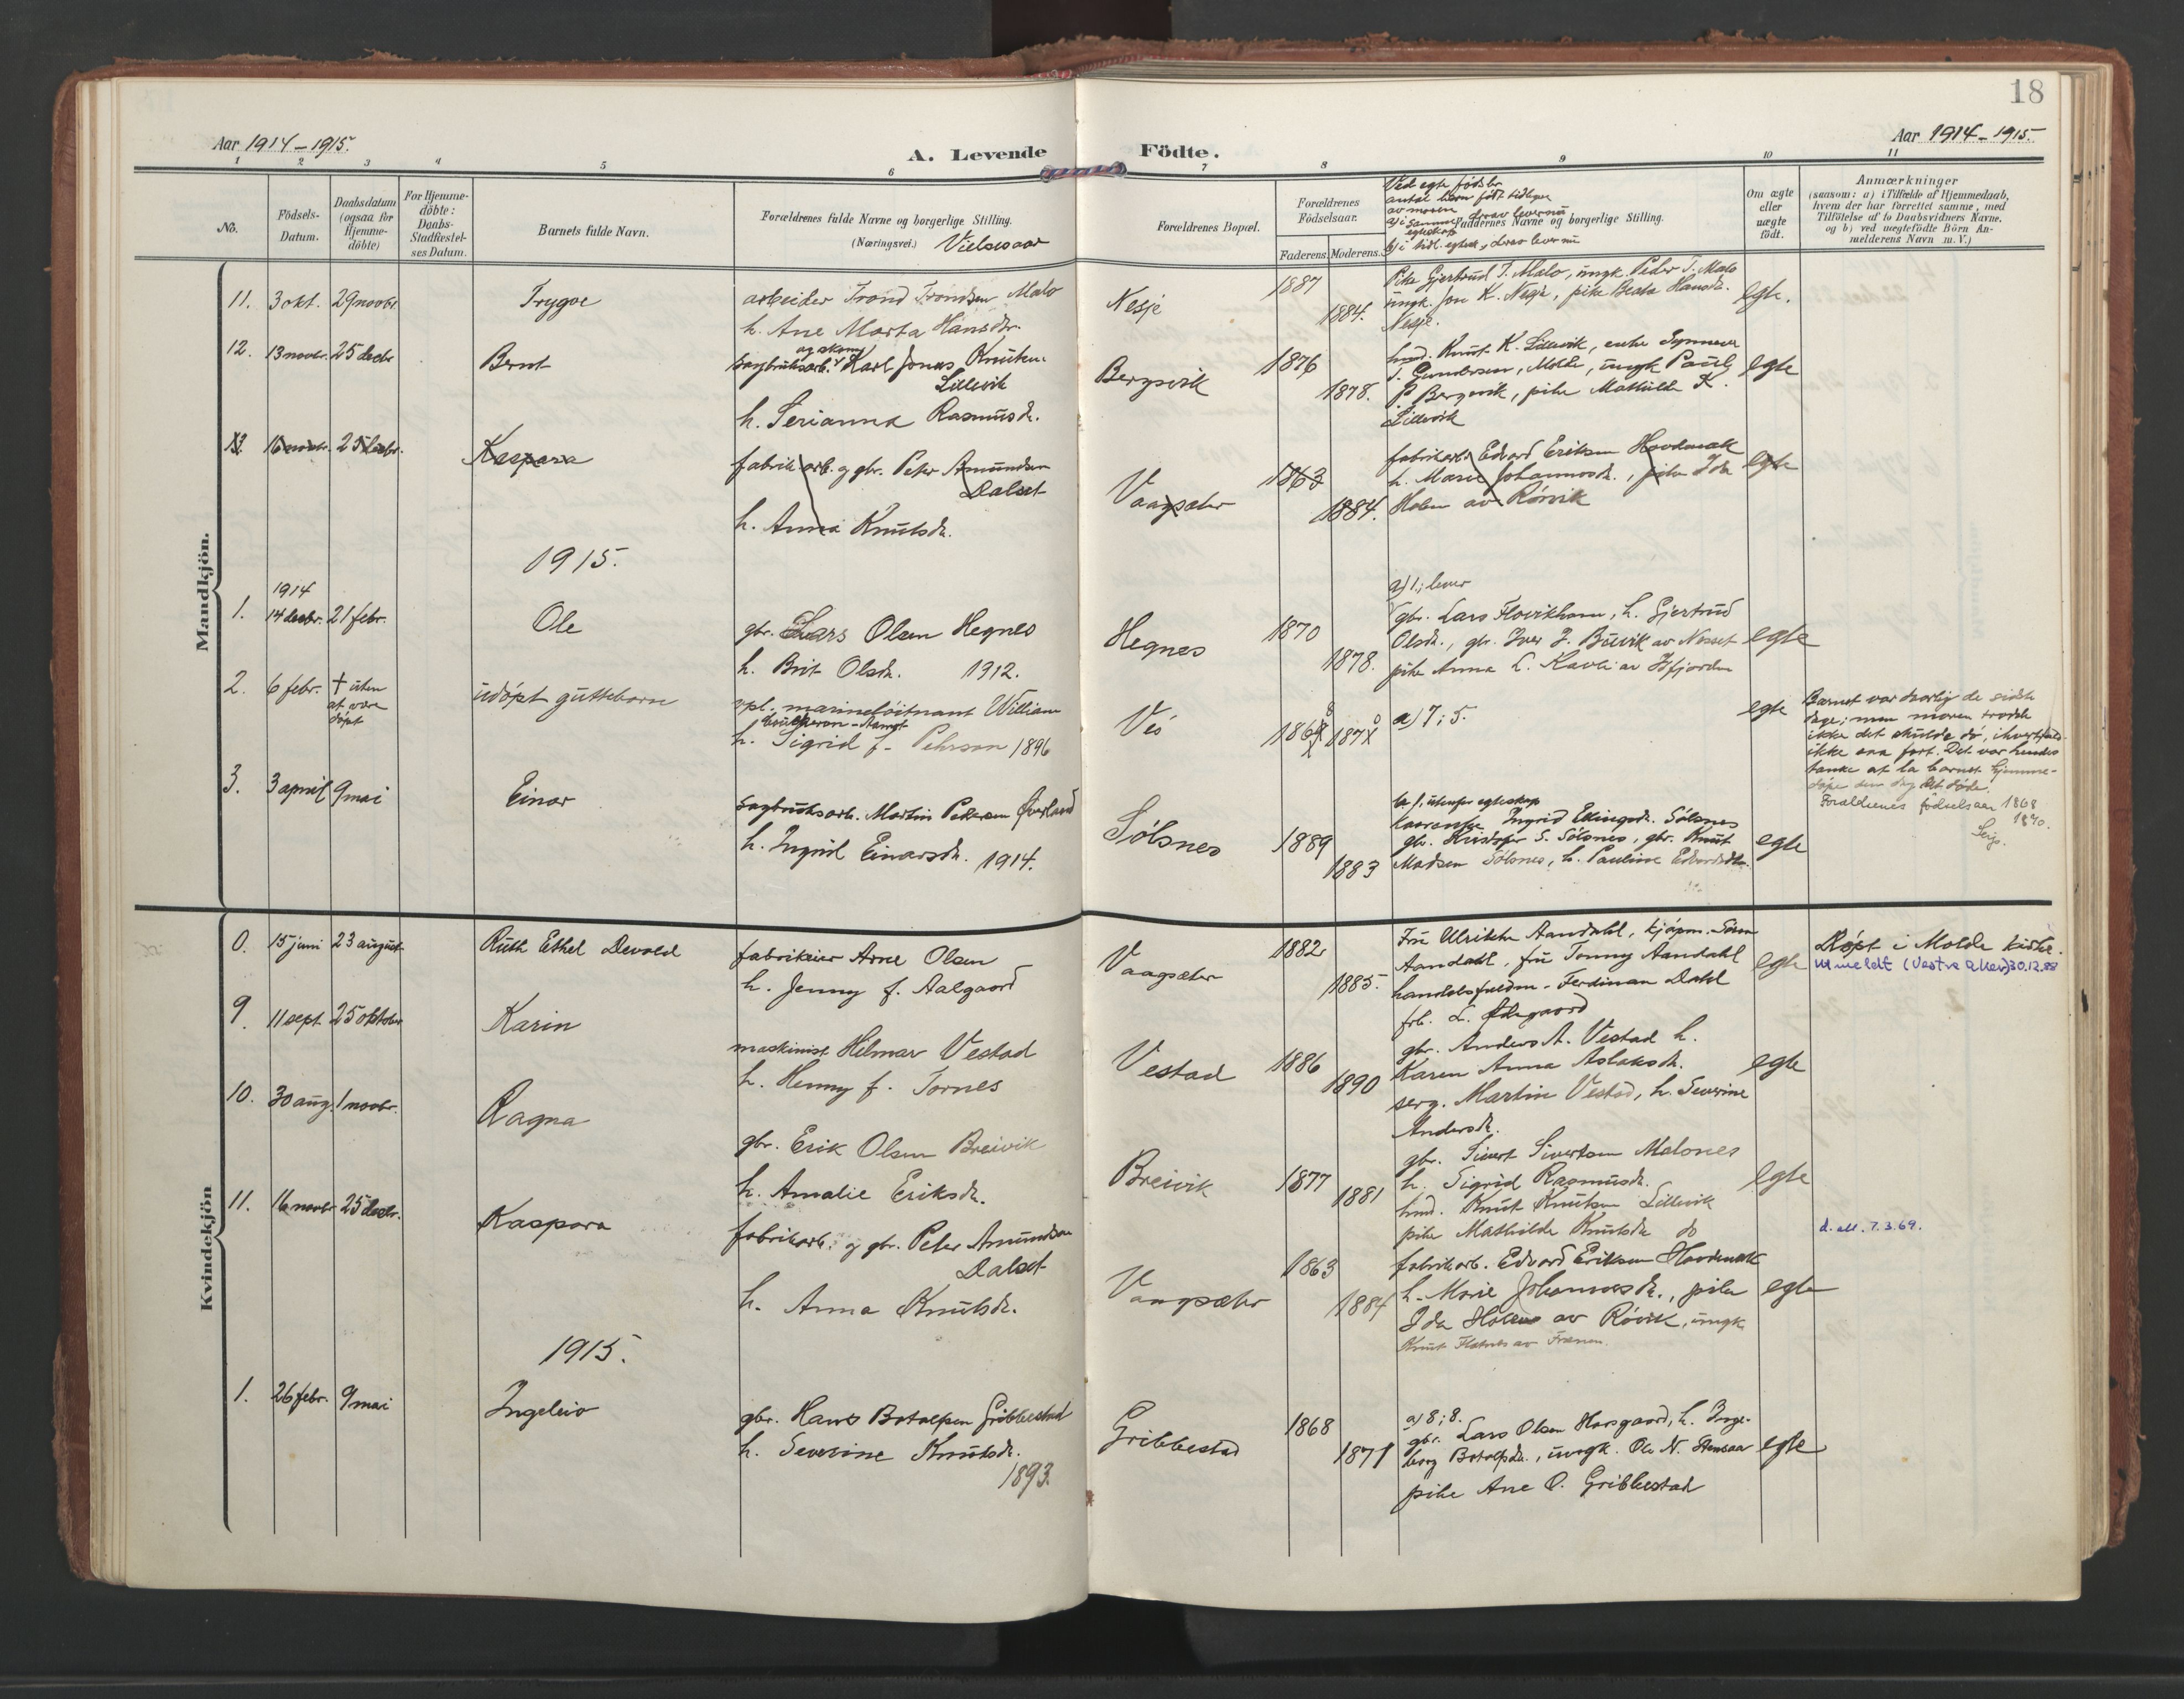 18
Aar 1914-1915.
A. Levende Födte.
Aar 1914-1915.
1 2 3 4 5 6 7 8 9 10 11
No.
Födsels-
Datum.
Daabsdatum
(ogsaa for
Hjemme-
döbte)
For Hjemme-
döbte:
Daabs-
Stadfæstel-
ses Datum.
Barnets fulde Navn.
Forældrenes fulde Navne og borgerlige Stilling.
(Næringsvei.) Vielsesaar
Forældrenes Bopæl.
Forældrenes
Födselsaar.
Faderens. Moderens.
Ved egte födsler
antal børn födt tidligere
av moren
a) i samme egteskap derav levernu
Faddernes Navne og borgerlige Stilling.
b) i tidl. egtesk., derav lever nu
Om ægte
eller
uægte
födt.
Anmærkninger
(saasom: a) i Tilfælde af Hjemmedaab,
hvem der har forrettet samme, med
Tilföielse af to Daabsvidners Navne.
og b) ved uægtefödte Börn An-
melderens Navn m. V.)
Mandkjön.
11. 3 okt. 29 novbr. Trygve
arbeider Trond Trondsen Malo
h. Ane Marta Hansdtr.
Nesje 1887 1884.
Pike Gjertrud T. Malo, ungk. Peder T. Malo
ungk. Jon K. Nesje, pike Beata Hansdr.
Nesje.
egte.
12. 13 novbr. 25 decbr Bernt
sagbruksarb. og skom. Karl Jonas Knutsen
Lillevik
h. Serianna Rasmusdr.
Bergsvik 1876 1878.
hmd. Knut K. Lillevik, enke
T. Gundersen, Molde, ungk Paul
P. Bergsvik, pike Mathilde K.
Lillevik
egte
13. 16 novbr. 25 decbr. Kaspara
fabrikarb. og gbr. Peter Amundsen
Dalset
h. Anna Knutsdr.
Vaagsæter 1863 1884.
fabrikarb. Edvard Eriksen Hovdenak
h. Marie Johannesdr., pike Ida
Holen av Rörvik
egte
1915.
1. 1914
14 decbr. 21 febr. Ole
gbr. Lars Olsen Hegnes
h. Brit Olsdr. 1912.
Hegnes 1870 1878.
a) 1; lever
gbr. Lars Flovikholm, h. Gjertrud
Olsdr., gbr. Iver J. Buvik av Nesset
pike Anna L. Kavli av Isfjorden
egte
2. 6 febr. † uten
at være
döpt
udöpt guttebarn
vpl. marinelöitnant William
h. Sigrid f. Pehrson 1896
Vöi 186 187
a) 7; 5.
egte
Barnet var daarlig de sidste
dage; men moren trodde
ikke det skulde dö, ihvertfald
ikke saa fort. Det var hendes
tanke at la barnet hjemme-
döpe den dag det döde.
Forældrenes födselsaar 1868
1870.
3. 3 april 9 mai Einar
sagbruksarb. Martin Pedersen Överland
h. Ingrid Einarsdr. 1914.
Sölsnes 1889 1883
b. 1, utenfor egteskap
Ingrid Ellingsdr. Sölsnes
gbr. Kristofer S. Sölsnes, gbr. Knut
Madsen Sölsnes, h. Pauline Edvardsdtr.
egte
Kvindekjön
0. 15 juni 23 august Ruth Ethel Devold
fabrikeier Arne Olsen
h. Jenny f. Aalgaard
Vaagsæter 1882 1885.
Fru Ulrikke Aandahl, kjöpm. Sören
Aandahl, fru Tonny Aandahl
handelsfuldm. Ferdinan Dahl
frk. L. Ödegaard
egte
Döpt i Molde kirke.
Utmeldt (Vestre Aker) 30.12.88
9. 11 sept 25 oktober Karin
maskinist Helmar Vestad
h. Henny f. Tornes
Vestad 1886 1890
gbr. Anders A. Vestad h.
Karen Anna Aslaksdr.
serg. Martin Vestad, h. Severine
Andersdr.
egte
10. 30 aug. 1 novbr. Ragna
gbr. Erik Olsen Breivik
h. Amalie Eriksdr.
Breivik 1877 1881
gbr. Sivert Sivertsen Malones
h. Sigrid Rasmusdr.
hmd. Knut Knutsen Lillevik
pike Mathilde Knutsdr do
egte
11. 16 novbr 25 decbr. Kaspara
fabrikarb. og gbr. Peter Amundsen
Dalset
h. Anna Knutsdr.
Vaagsæter 1863 1884
fabrikarb. Edvard Eriksen Hovdenak
h. Marie Johannesdr., pike
Ida Holen av Rövik, ungk.
Knut av Frænen.
egte
d. att. 7.3.69.
1915.
1. 26 febr. 9 mai Ingeleiv
gbr. Hans Botolfsen Gribbestad
h. Severine Knutsdr.
1893.
Gribbestad 1868 1871
a) 8; 8.
gbr. Lars Olsen Horsgaard, h. Inge-
borg Botolfsdr., ungk. Ole N. Stensaar
pike Ane O. Gribbestad
egte